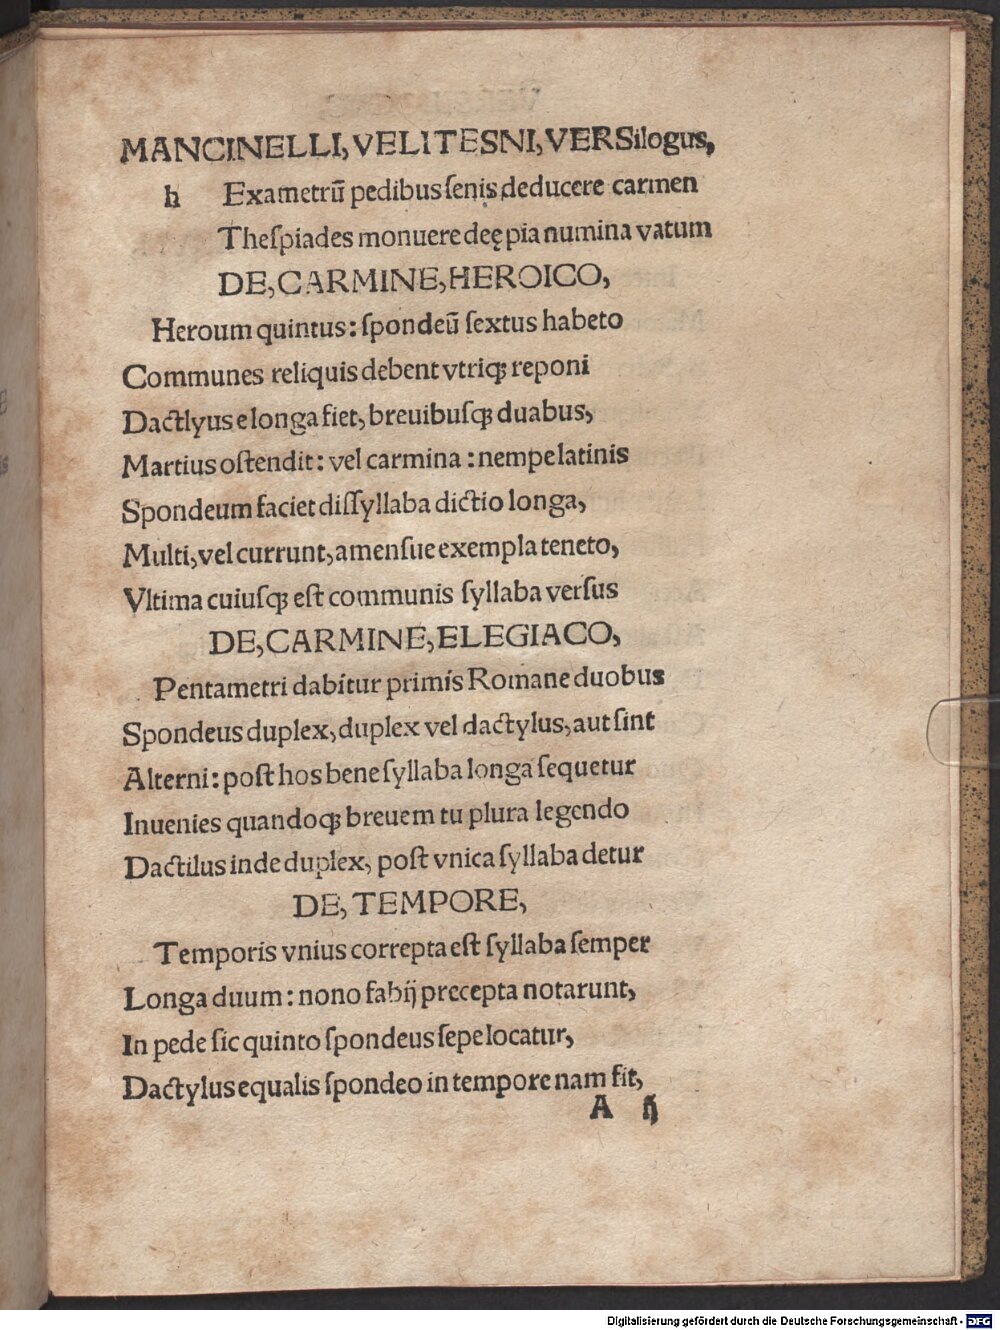 MANCINELLI, VELITESNI, VERSilogus,
h Exametrũ pedibus ſenis deducere carmen
Theſpiades monuere deę pia numina vatum
DE, CARMINE, HEROICO,
Heroum quintus: ſpondeũ ſextus habeto
Communes reliquis debent vtriqꝫ reponi
Dactlyus e longa fiet, breuibuſqꝫ duabus,
Martius oſtendit: vel carmina: nempe latinis
Spondeum faciet diſſyllaba dictio longa,
Multi, vel currunt, amenſue exempla teneto,
Vltima cuiuſqꝫ eſt communis ſyllaba verſus
DE, CARMINE, ELEGIACO,
Pentametri dabitur primis Romane duobus
Spondeus duplex, duplex vel dactylus, aut ſint
Alterni: poſt hos bene ſyllaba longa ſequetur
Inuenies quandoqꝫ breuem tu plura legendo
Dactilus inde duplex, poſt vnica ſyllaba detur
DE, TEMPORE,
Temporis vnius correpta eſt ſyllaba ſemper
Longa duum: nono fabij precepta notarunt,
In pede ſic quinto ſpondeus ſepe locatur,
Dactylus equalis ſpondeo in tempore nam fit,
A ij
Digitalisierung gefördert durch die Deutsche Forschungsgemeinschaft - DFG